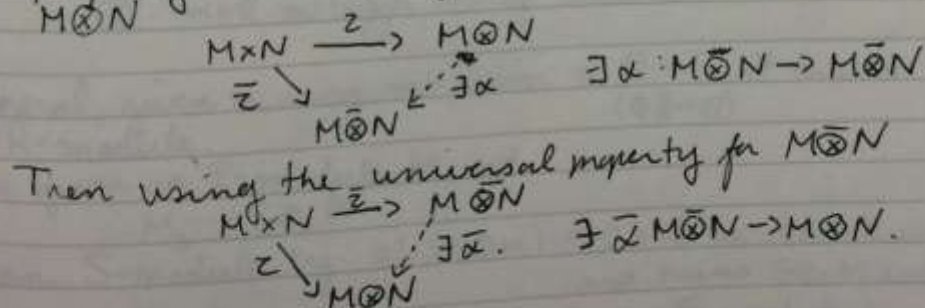 M⊗N
M×N —τ→ M⊗N
τ̄ ↘ ↙ ∃α ∃α : M⊗̄N → M⊗̄N
M⊗̄N
Then using the universal property for M⊗̄N
M×N —τ̄→ M⊗̄N
τ ↘ ↙ ∃ᾱ. ∃ᾱ M⊗̄N → M⊗N.
M⊗N